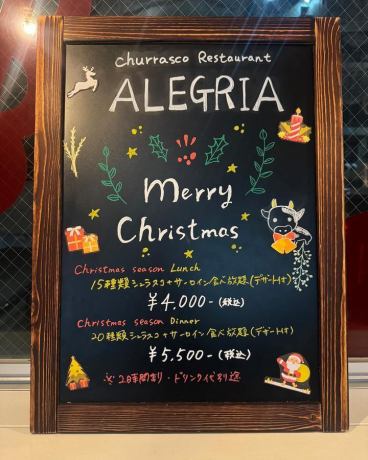 Churrasco Restaurant
ALEGRIA
Merry
Christmas
Christmas season Lunch
15種類シュラスコ+サーロイン食べ放題(デザート付)
¥4,000-(税込)
Christmas season Dinner
20種類シュラスコ+サーロイン食べ放題(デザート付)
¥5,500-(税込)
※2時間制・ドリンク代別途